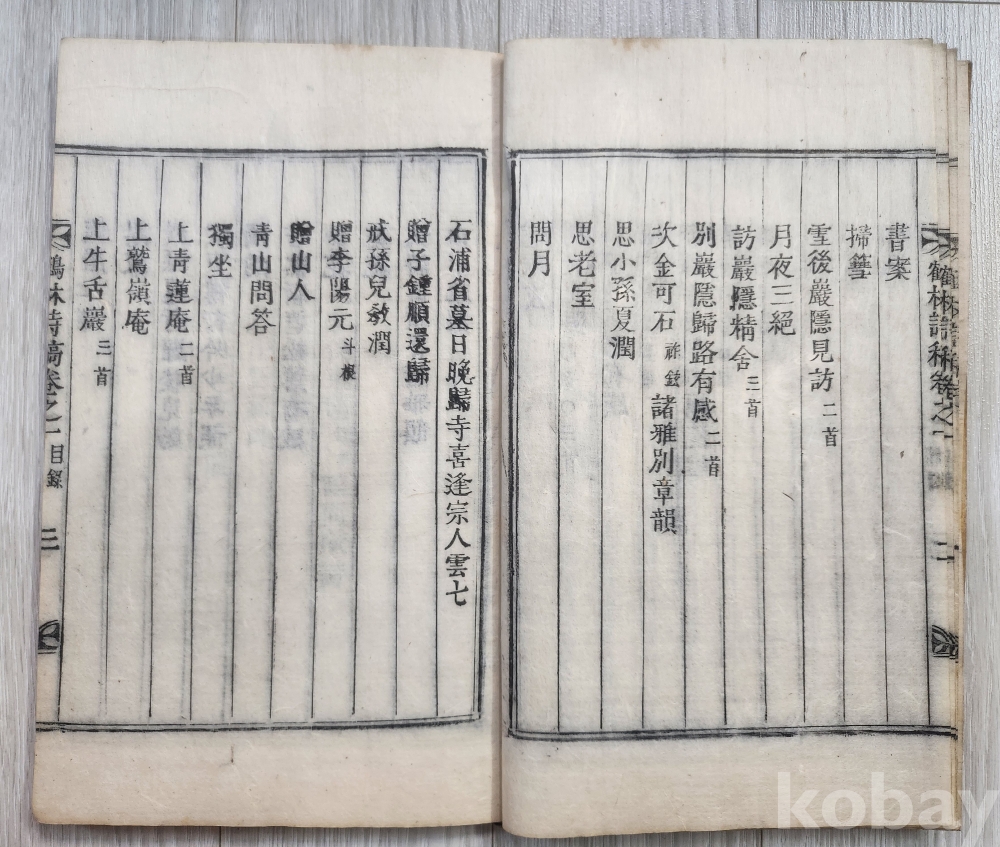 鶴林詩稿卷之一
二
書案
掃篲
雪後巖隱見訪 二首
月夜三絕
訪巖隱精舍 三首
別巖隱歸路有感 二首
次金可石 祚 諸雅別章韻
思小孫夏潤
思老室
問月
石浦省墓日晚歸寺喜逢宗人雲七
贈子鍾順還歸
戒孫兒敎潤
贈李陽元 斗根
贈山人
靑山問答
獨坐
上靑蓮庵 二首
上鷲嶺庵
上牛舌巖 三首
鶴林詩稿卷之一 目錄 三
kobay